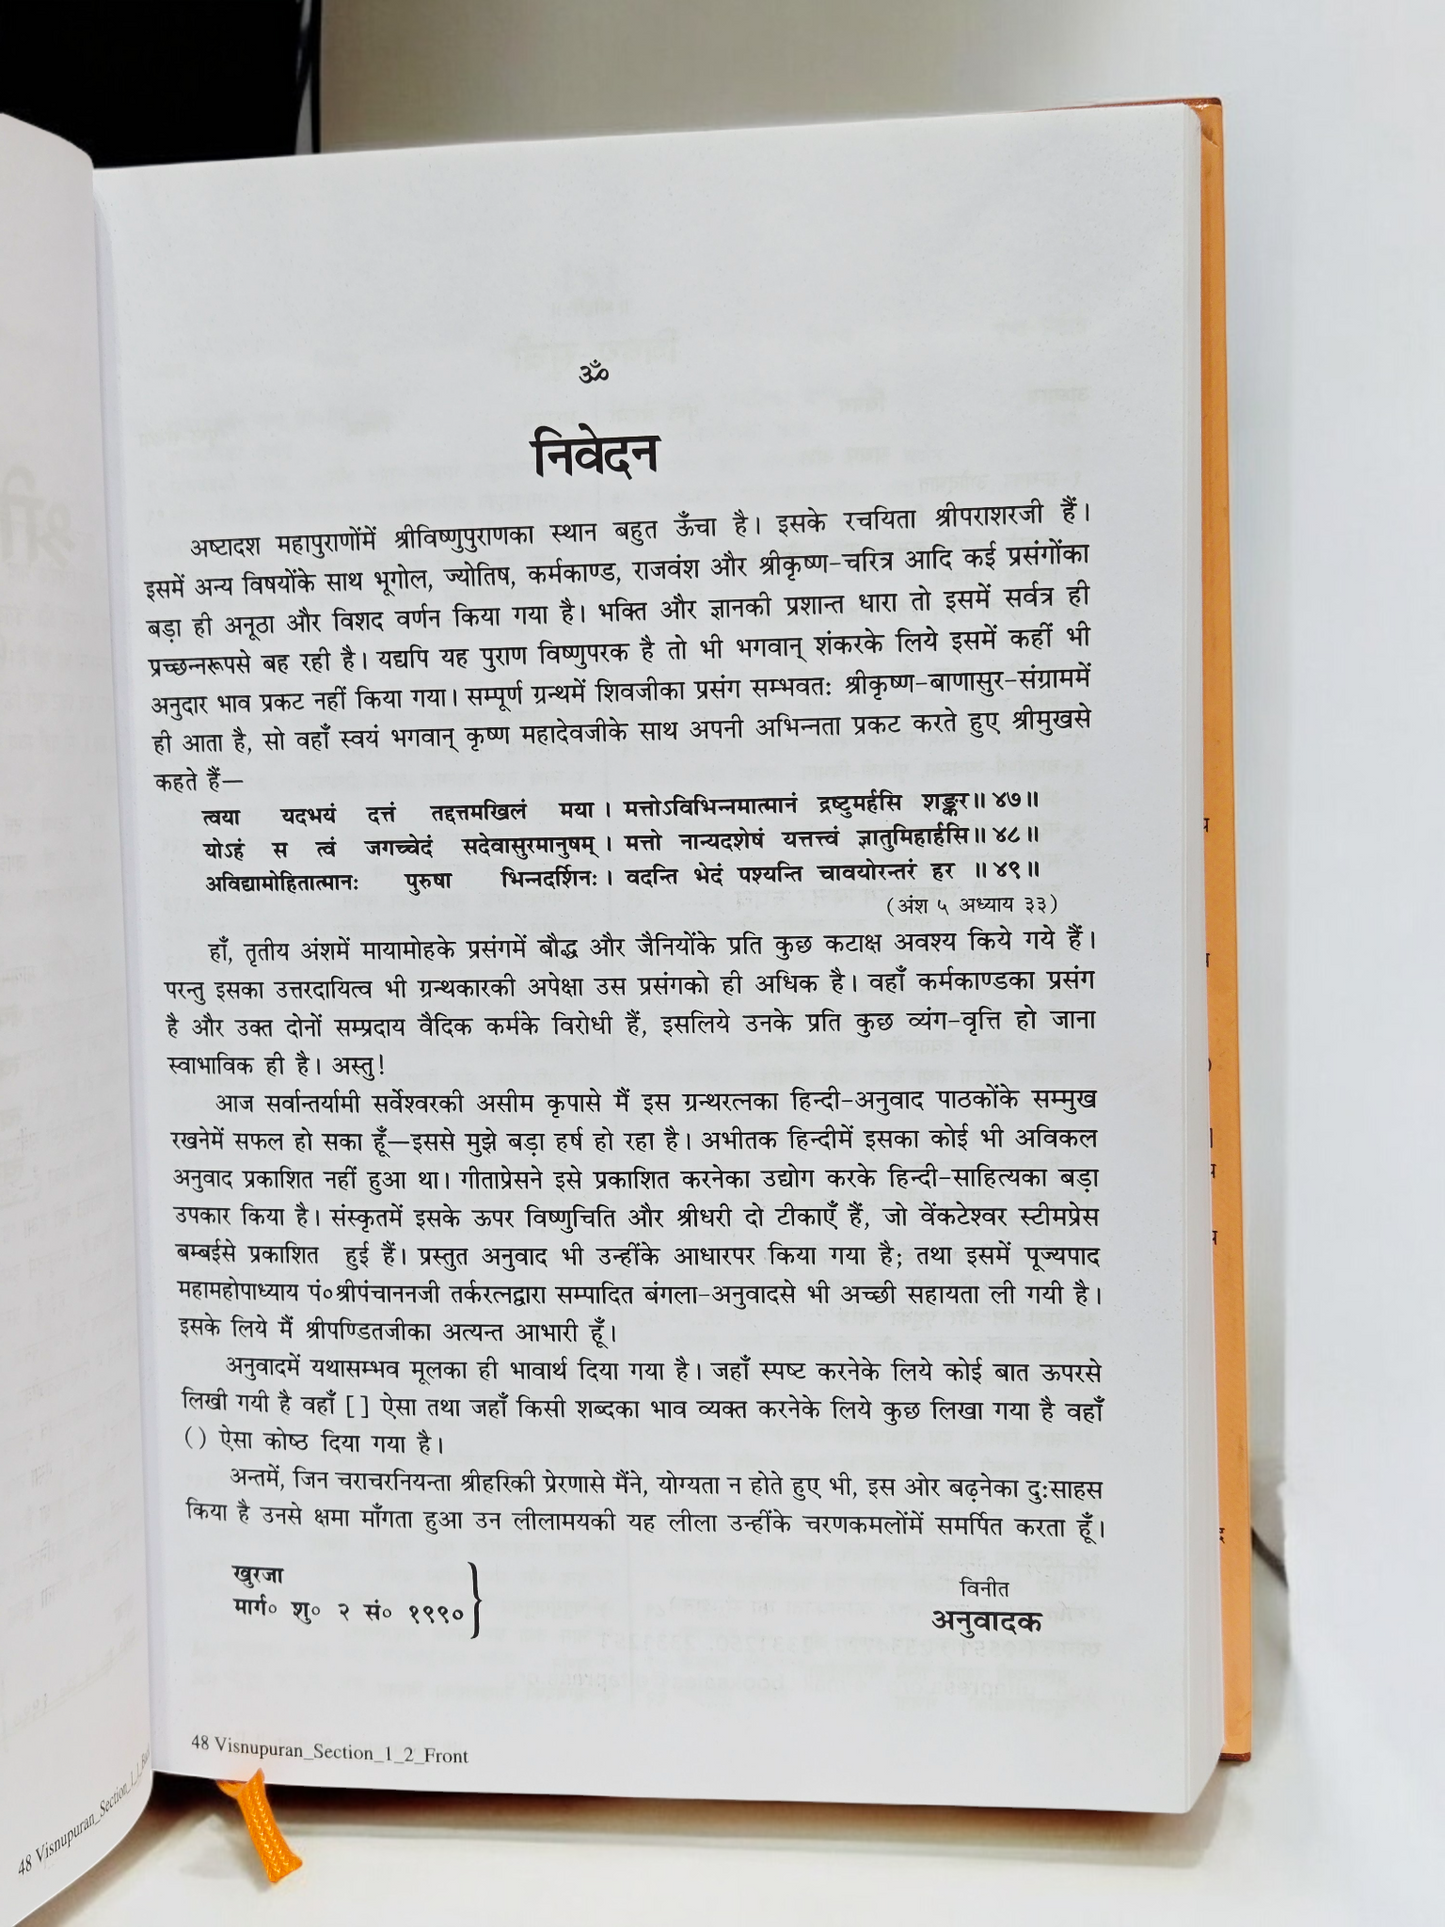 ॐ
निवेदन
अष्टादश महापुराणोंमें श्रीविष्णुपुराणका स्थान बहुत ऊँचा है। इसके रचयिता श्रीपराशरजी हैं।
इसमें अन्य विषयोंके साथ भूगोल, ज्योतिष, कर्मकाण्ड, राजवंश और श्रीकृष्ण-चरित्र आदि कई प्रसंगोंका
बड़ा ही अनूठा और विशद वर्णन किया गया है। भक्ति और ज्ञानकी प्रशान्त धारा तो इसमें सर्वत्र ही
प्रच्छन्नरूपसे बह रही है। यद्यपि यह पुराण विष्णुपरक है तो भी भगवान् शंकरके लिये इसमें कहीं भी
अनुदार भाव प्रकट नहीं किया गया। सम्पूर्ण ग्रन्थमें शिवजीका प्रसंग सम्भवतः श्रीकृष्ण-बाणासुर-संग्राममें
ही आता है, सो वहाँ स्वयं भगवान् कृष्ण महादेवजीके साथ अपनी अभिन्नता प्रकट करते हुए श्रीमुखसे
कहते हैं—
त्वया यदभयं दत्तं तद्दत्तमखिलं मया। मत्तोऽविभिन्नमात्मानं द्रष्टुमर्हसि शङ्कर॥ ४७॥
योऽहं स त्वं जगच्चेदं सदेवासुरमानुषम्। मत्तो नान्यदशेषं यत्तत्त्वं ज्ञातुमिहार्हसि॥ ४८॥
अविद्यामोहितात्मानः पुरुषा भिन्नदर्शिनः। वदन्ति भेदं पश्यन्ति चावयोरन्तरं हर ॥ ४९॥
(अंश ५ अध्याय ३३)
हाँ, तृतीय अंशमें मायामोहके प्रसंगमें बौद्ध और जैनियोंके प्रति कुछ कटाक्ष अवश्य किये गये हैं।
परन्तु इसका उत्तरदायित्व भी ग्रन्थकारकी अपेक्षा उस प्रसंगको ही अधिक है। वहाँ कर्मकाण्डका प्रसंग
है और उक्त दोनों सम्प्रदाय वैदिक कर्मके विरोधी हैं, इसलिये उनके प्रति कुछ व्यंग-वृत्ति हो जाना
स्वाभाविक ही है। अस्तु!
आज सर्वान्तर्यामी सर्वेश्वरकी असीम कृपासे मैं इस ग्रन्थरत्नका हिन्दी-अनुवाद पाठकोंके सम्मुख
रखनेमें सफल हो सका हूँ—इससे मुझे बड़ा हर्ष हो रहा है। अभीतक हिन्दीमें इसका कोई भी अविकल
अनुवाद प्रकाशित नहीं हुआ था। गीताप्रेसने इसे प्रकाशित करनेका उद्योग करके हिन्दी-साहित्यका बड़ा
उपकार किया है। संस्कृतमें इसके ऊपर विष्णुचिति और श्रीधरी दो टीकाएँ हैं, जो वेंकटेश्वर स्टीमप्रेस
बम्बईसे प्रकाशित हुई हैं। प्रस्तुत अनुवाद भी उन्हींके आधारपर किया गया है; तथा इसमें पूज्यपाद
महामहोपाध्याय पं०श्रीपंचाननजी तर्करत्नद्वारा सम्पादित बंगला-अनुवादसे भी अच्छी सहायता ली गयी है।
इसके लिये मैं श्रीपण्डितजीका अत्यन्त आभारी हूँ।
अनुवादमें यथासम्भव मूलका ही भावार्थ दिया गया है। जहाँ स्पष्ट करनेके लिये कोई बात ऊपरसे
लिखी गयी है वहाँ [ ] ऐसा तथा जहाँ किसी शब्दका भाव व्यक्त करनेके लिये कुछ लिखा गया है वहाँ
( ) ऐसा कोष्ठ दिया गया है।
अन्तमें, जिन चराचरनियन्ता श्रीहरिकी प्रेरणासे मैंने, योग्यता न होते हुए भी, इस ओर बढ़नेका दुःसाहस
किया है उनसे क्षमा माँगता हुआ उन लीलामयकी यह लीला उन्हींके चरणकमलोंमें समर्पित करता हूँ।
खुरजा
मार्ग० शु० २ सं० १९९०
विनीत
अनुवादक
48 Visnupuran_Section_1_2_Front
48 Visnupuran_Section_1_1_Back